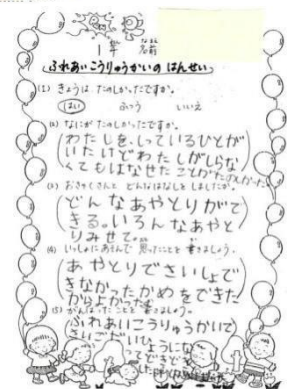 1年 名前
ふれあいこうりゅうかいの はんせい
(1) きょうは、たのしかったですか。
はい ふつう いいえ
(2) なにが たのしかったですか。
わたしを、しっているひとが
いたけどわたしがしらな
くてもはなせたことがたのしかった
(3) おきゃくさんと どんなはなしを しましたか。
どんなあやとりがで
きる。いろんなあやと
りみせて。
(4) いっしょにあそんで 思ったことを 書きましょう。
あやとりでさいしょで
きなかったかめをできた
からよかった
(5) がんばったことを 書きましょう。
ふれあいこうりゅうかいで